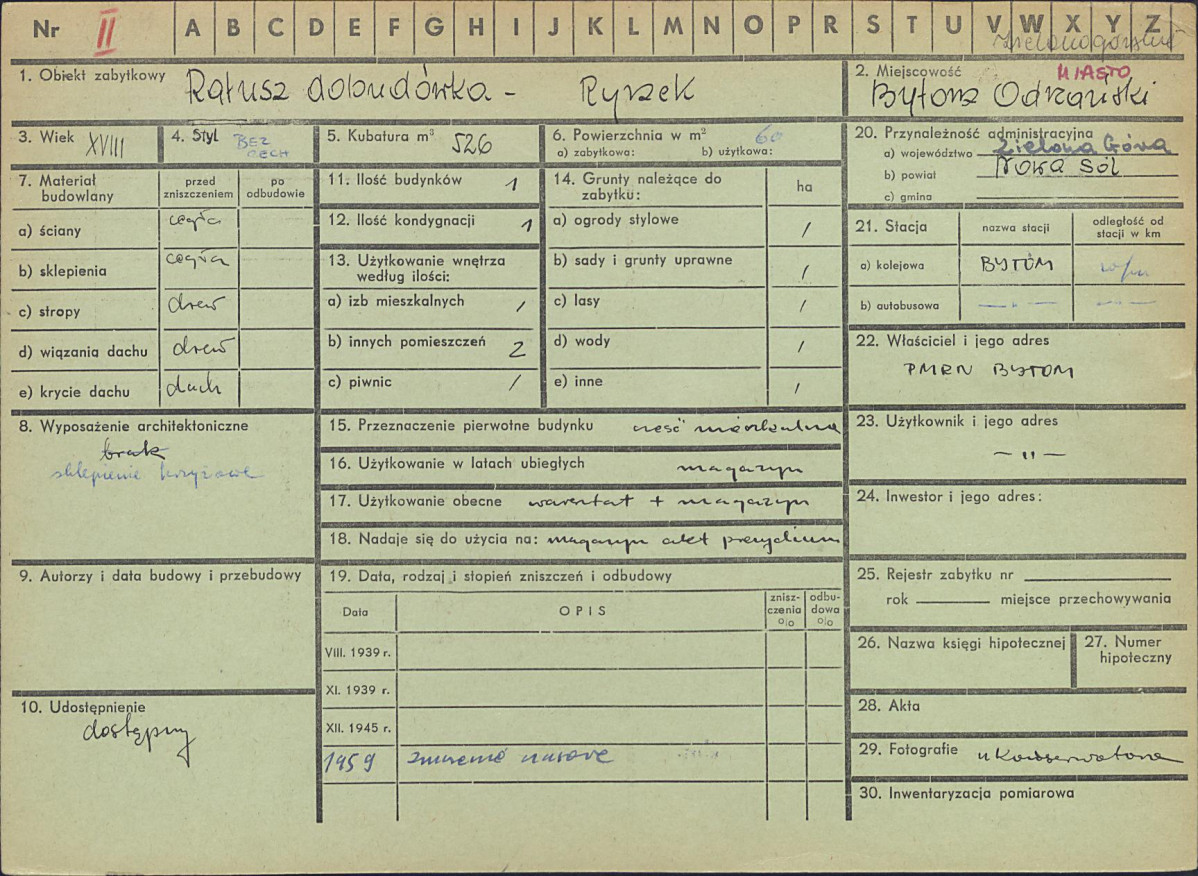 Nr II A B C D E F G H I J K L M N O P R S T U V W X Y Z
Zielonogórskie
1. Obiekt zabytkowy Ratusz dobudówka - Rynek
2. Miejscowość MIASTO
Bytom Odrzański
3. Wiek XVIII
4. Styl BEZ CECH
5. Kubatura m³ 526
6. Powierzchnia w m² 60
a) zabytkowa: b) użytkowa:
20. Przynależność administracyjna
a) województwo Zielona Góra
b) powiat Nowa Sól
c) gmina
7. Materiał budowlany
przed zniszczeniem
po odbudowie
a) ściany cegła
b) sklepienia cegła
c) stropy drew
d) wiązania dachu drew
e) krycie dachu dach
11. Ilość budynków 1
12. Ilość kondygnacji 1
13. Użytkowanie wnętrza
według ilości:
a) izb mieszkalnych /
b) innych pomieszczeń 2
c) piwnic /
14. Grunty należące do
zabytku:
ha
a) ogrody stylowe /
b) sady i grunty uprawne /
c) lasy /
d) wody /
e) inne /
21. Stacja
nazwa stacji
odległość od
stacji w km
a) kolejowa BYTOM
b) autobusowa — „ — — „ —
22. Właściciel i jego adres
PMRN BYTOM
8. Wyposażenie architektoniczne
brak
sklepienie krzyżowe
15. Przeznaczenie pierwotne budynku część mieszkalna
16. Użytkowanie w latach ubiegłych magazyn
17. Użytkowanie obecne warsztat + magazyn
18. Nadaje się do użycia na: magazyn akt prezydium
23. Użytkownik i jego adres
— „ —
24. Inwestor i jego adres:
9. Autorzy i data budowy i przebudowy
19. Data, rodzaj i stopień zniszczeń i odbudowy
Data
OPIS
znisz-
czenia
%
odbu-
dowa
%
VIII. 1939 r.
XI. 1939 r.
XII. 1945 r.
1959
25. Rejestr zabytku nr
rok miejsce przechowywania
26. Nazwa księgi hipotecznej
27. Numer
hipoteczny
10. Udostępnienie
dostępny
28. Akta
29. Fotografie u Konserwatora
30. Inwentaryzacja pomiarowa